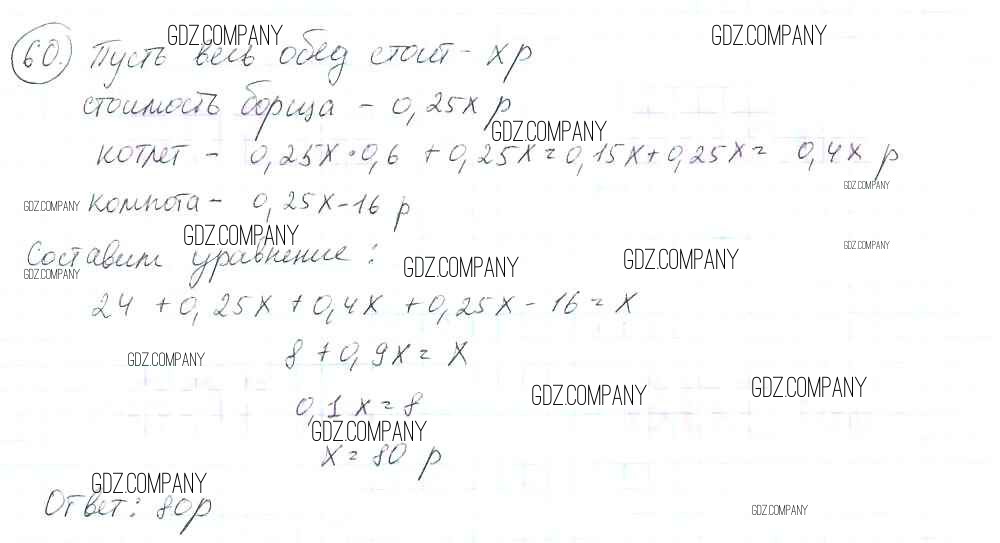 GDZ.COMPANY GDZ.COMPANY
60. Пусть весь обед стоит - x р
стоимость борща - 0,25x р
GDZ.COMPANY
котлет - 0,25x·0,6 + 0,25x = 0,15x + 0,25x = 0,4x р
GDZ.COMPANY
GDZ.COMPANY компота - 0,25x - 16 р
GDZ.COMPANY
Составим уравнение: GDZ.COMPANY
GDZ.COMPANY GDZ.COMPANY GDZ.COMPANY
24 + 0,25x + 0,4x + 0,25x - 16 = x
GDZ.COMPANY 8 + 0,9x = x
GDZ.COMPANY GDZ.COMPANY
0,1x = 8
GDZ.COMPANY
x = 80 р
GDZ.COMPANY
Ответ: 80р
GDZ.COMPANY